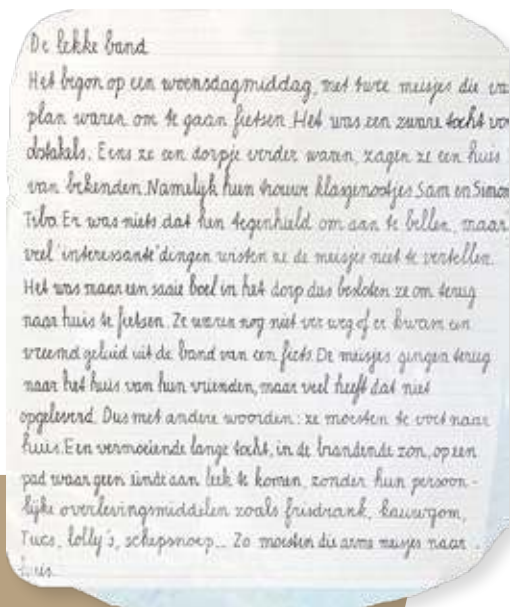 De lekke band
Het begon op een woensdagmiddag, met twee meisjes die va
plan waren om te gaan fietsen. Het was een zware tocht vo
obstakels. Eens ze een dorpje verder waren, zagen ze een huis
van bekenden. Namelijk hun trouwe klasgenootjes Sam en Simon
Tibo. Er was niets dat hen tegenhield om aan te bellen, maar
veel 'interessante' dingen wisten ze de meisjes niet te vertellen.
Het was maar een saaie boel in het dorp dus besloten ze om terug
naar huis te fietsen. Ze waren nog niet ver weg of er kwam een
vreemd geluid uit de band van een fiets. De meisjes gingen terug
naar het huis van hun vrienden, maar veel heeft dat niet
opgeleverd. Dus met andere woorden: ze moesten te voet naar
huis. Een vermoeiende lange tocht, in de brandende zon, op een
pad waar geen einde aan leek te komen, zonder hun persoon-
lijke overlevingsmiddelen zoals frisdrank, kauwgom,
Tucs, lolly's, schepsnoep... Zo moesten die arme meisjes naar
huis...